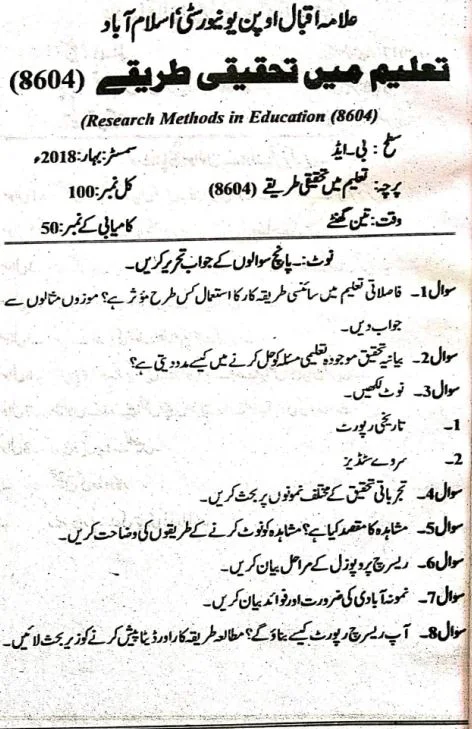 علامہ اقبال اوپن یونیورسٹی، اسلام آباد
تعلیم میں تحقیقی طریقے (8604)
(Research Methods in Education (8604)
سطح: بی۔ایڈ سمسٹر: بہار: 2018ء
پرچہ: تعلیم میں تحقیقی طریقے (8604) کل نمبر: 100
وقت: تین گھنٹے کامیابی کے نمبر: 50
نوٹ:۔ پانچ سوالوں کے جواب تحریر کریں۔
سوال1۔ فاصلاتی تعلیم میں سائنسی طریقہ کار کا استعمال کس طرح مؤثر ہے؟ موزوں مثالوں سے
جواب دیں۔
سوال2۔ بیانیہ تحقیق موجودہ تعلیمی مسئلہ کو حل کرنے میں کیسے مدد دیتی ہے؟
سوال3۔ نوٹ لکھیں۔
1۔ تاریخی رپورٹ
2۔ سروے سٹڈیز
سوال4۔ تجرباتی تحقیق کے مختلف نمونوں پر بحث کریں۔
سوال5۔ مشاہدہ کا مقصد کیا ہے؟ مشاہدہ کو نوٹ کرنے کے طریقوں کی وضاحت کریں۔
سوال6۔ ریسرچ پروپوزل کے مراحل بیان کریں۔
سوال7۔ نمونہ آبادی کی ضرورت اور فوائد بیان کریں۔
سوال8۔ آپ ریسرچ رپورٹ کیسے بناؤ گے؟ مطالعہ طریقہ کار اور ڈیٹا پیش کرنے کو زیر بحث لائیں۔